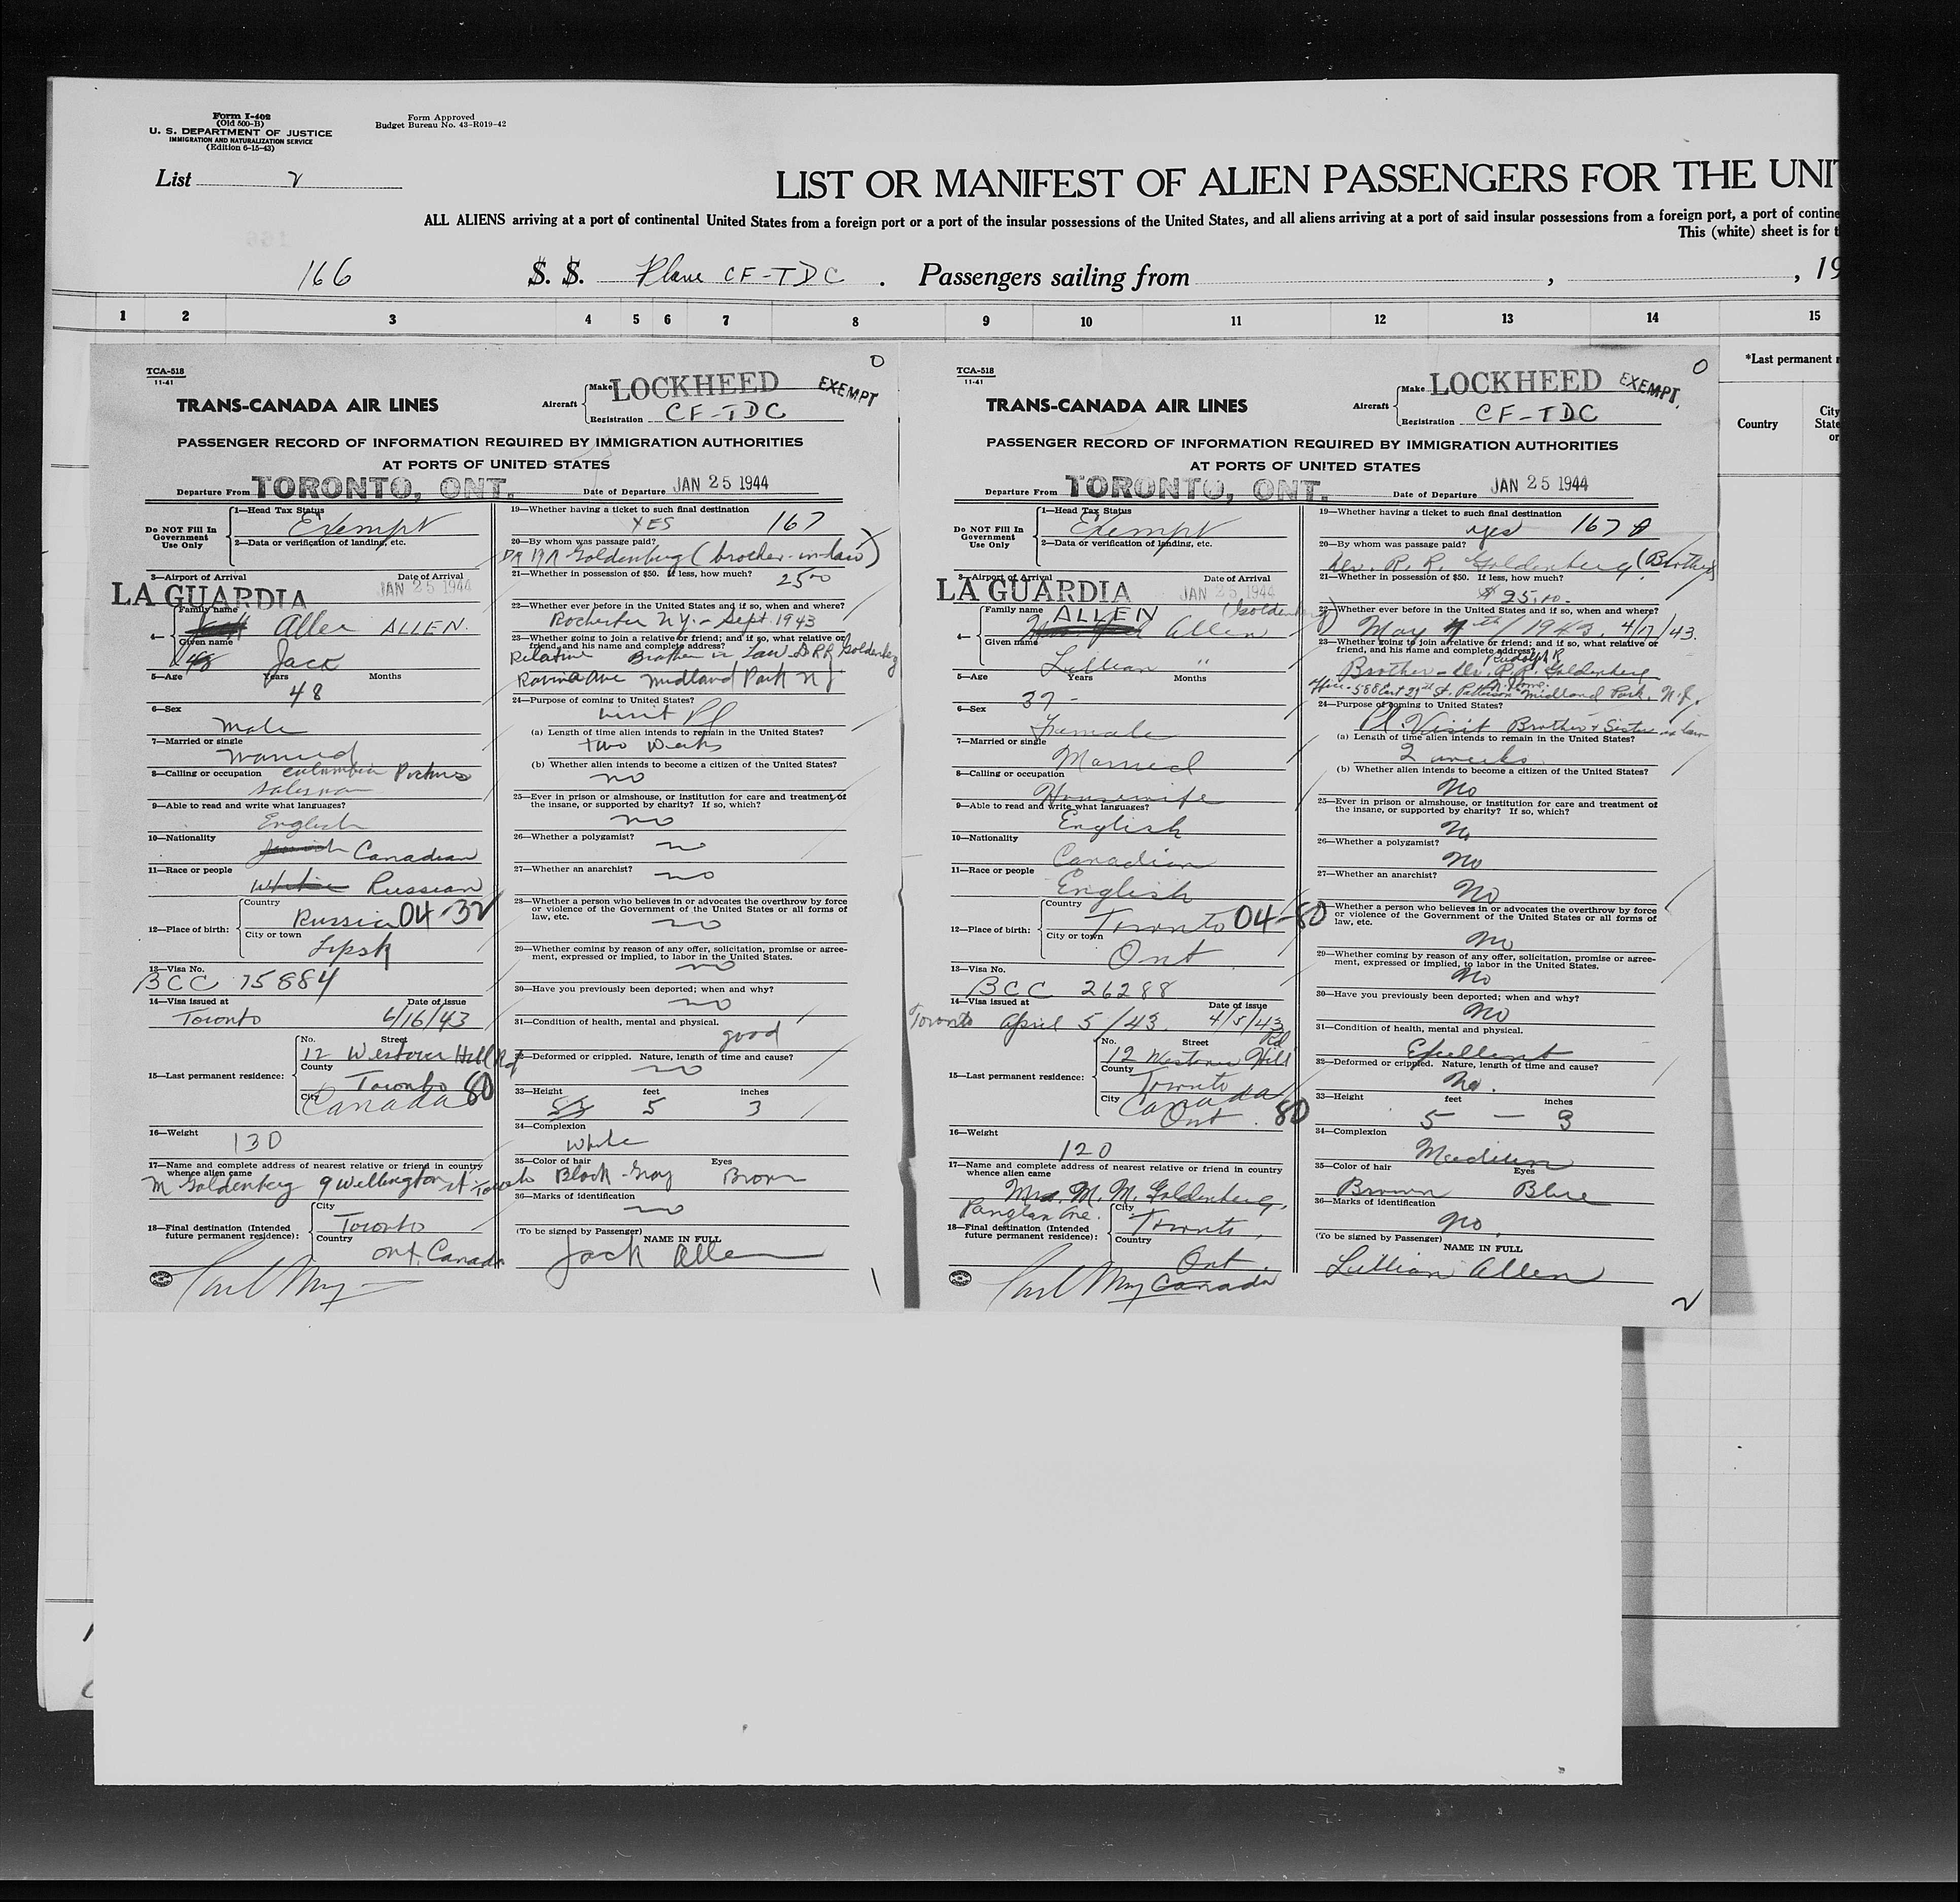 Form I-402
(Old 500-B)
U. S. DEPARTMENT OF JUSTICE
IMMIGRATION AND NATURALIZATION SERVICE
(Edition 6-15-43)
Form Approved
Budget Bureau No. 43-R019-42
List 2
LIST OR MANIFEST OF ALIEN PASSENGERS FOR THE UNI
ALL ALIENS arriving at a port of continental United States from a foreign port or a port of the insular possessions of the United States, and all aliens arriving at a port of said insular possessions from a foreign port, a port of contine
This (white) sheet is for t
166 S. S. Plane CF-TDC . Passengers sailing from , , 19
1 2 3 4 5 6 7 8 9 10 11 12 13 14 15
*Last permanent r
Country City State or
TCA-518
11-41
0
TRANS-CANADA AIR LINES
Aircraft Make LOCKHEED EXEMPT
Registration CF-TDC
PASSENGER RECORD OF INFORMATION REQUIRED BY IMMIGRATION AUTHORITIES
AT PORTS OF UNITED STATES
Departure From TORONTO, ONT. Date of Departure JAN 25 1944
Do NOT Fill In Government Use Only
1—Head Tax Status
Exempt
2—Data or verification of landing, etc.
3—Airport of Arrival Date of Arrival
LA GUARDIA JAN 25 1944
4— Family name
Allen ALLEN.
Given name
Jack
5—Age Years Months
48
6—Sex
Male
7—Married or single
Married
8—Calling or occupation Columbia Pictures
salesman
9—Able to read and write what languages?
English
10—Nationality
Canadian
11—Race or people
White Russian
12—Place of birth: Country
Russia 04-32
City or town
Lipsk
13—Visa No.
BCC 75884
14—Visa issued at Date of issue
Toronto 6/16/43
15—Last permanent residence: No. Street
12 Westover Hill Rd
County
Toronto 80
City
Canada
16—Weight
130
17—Name and complete address of nearest relative or friend in country
whence alien came
M Goldenberg 9 Wellington st Toronto
18—Final destination (Intended future permanent residence): City
Toronto
Country
Ont. Canada
19—Whether having a ticket to such final destination
YES 167
20—By whom was passage paid?
Goldenberg (brother-in-law)
21—Whether in possession of $50. If less, how much? 25 00
22—Whether ever before in the United States and if so, when and where?
Rochester N.Y. - Sept. 1943
23—Whether going to join a relative or friend; and if so, what relative or
friend, and his name and complete address?
Relative Brother in Law Dr RR Goldenberg
Ravine Ave Midland Park N J
24—Purpose of coming to United States?
visit Pl
(a) Length of time alien intends to remain in the United States?
two weeks
(b) Whether alien intends to become a citizen of the United States?
no
25—Ever in prison or almshouse, or institution for care and treatment of
the insane, or supported by charity? If so, which?
no
26—Whether a polygamist?
no
27—Whether an anarchist?
no
28—Whether a person who believes in or advocates the overthrow by force
or violence of the Government of the United States or all forms of
law, etc.
no
29—Whether coming by reason of any offer, solicitation, promise or agree-
ment, expressed or implied, to labor in the United States.
no
30—Have you previously been deported; when and why?
no
31—Condition of health, mental and physical.
good
32—Deformed or crippled. Nature, length of time and cause?
no
33—Height feet inches
5 3
34—Complexion
White
35—Color of hair Eyes
Black-Gray Brown
36—Marks of identification
no
(To be signed by Passenger) NAME IN FULL
Jack Allen
TCA-518
11-41
0
TRANS-CANADA AIR LINES
Aircraft Make LOCKHEED EXEMPT.
Registration CF-TDC
PASSENGER RECORD OF INFORMATION REQUIRED BY IMMIGRATION AUTHORITIES
AT PORTS OF UNITED STATES
Departure From TORONTO, ONT. Date of Departure JAN 25 1944
Do NOT Fill In Government Use Only
1—Head Tax Status
Exempt
2—Data or verification of landing, etc.
3—Airport of Arrival Date of Arrival
LA GUARDIA JAN 25 1944
4— Family name ALLEN (Goldenberg)
Allen
Given name
Lillian "
5—Age Years Months
37 -
6—Sex
Female
7—Married or single
Married
8—Calling or occupation
Housewife
9—Able to read and write what languages?
English
10—Nationality
Canadian
11—Race or people
English
12—Place of birth: Country
Toronto 04-80
City or town
Ont
13—Visa No.
BCC 26288
14—Visa issued at Date of issue
Toronto April 5/43. 4/5/43
15—Last permanent residence: No. Street
12 Westover Hill Rd
County
Toronto
City
Canada
Ont. 80
16—Weight
120
17—Name and complete address of nearest relative or friend in country
whence alien came
Mrs. M. M. Goldenberg,
18—Final destination (Intended future permanent residence): City
Toronto,
Country
Ont.
Canada
19—Whether having a ticket to such final destination
yes 167
20—By whom was passage paid?
Dr. R. R. Goldenberg (Brother)
21—Whether in possession of $50. If less, how much?
22—Whether ever before in the United States and if so, when and where?
May 1943. 4/17/43.
23—Whether going to join a relative or friend; and if so, what relative or
friend, and his name and complete address?
Rudolph R.
Brother - Dr. R. R. Goldenberg
Midland Park. N.J.
24—Purpose of coming to United States?
Pl Visit Brother & Sister in law
(a) Length of time alien intends to remain in the United States?
2 weeks
(b) Whether alien intends to become a citizen of the United States?
No
25—Ever in prison or almshouse, or institution for care and treatment of
the insane, or supported by charity? If so, which?
No
26—Whether a polygamist?
No
27—Whether an anarchist?
No
28—Whether a person who believes in or advocates the overthrow by force
or violence of the Government of the United States or all forms of
law, etc.
No
29—Whether coming by reason of any offer, solicitation, promise or agree-
ment, expressed or implied, to labor in the United States.
No
30—Have you previously been deported; when and why?
No
31—Condition of health, mental and physical.
Excellent
32—Deformed or crippled. Nature, length of time and cause?
No.
33—Height feet inches
5 — 3
34—Complexion
Medium
35—Color of hair Eyes
Brown Blue
36—Marks of identification
No.
(To be signed by Passenger) NAME IN FULL
Lillian Allen
2